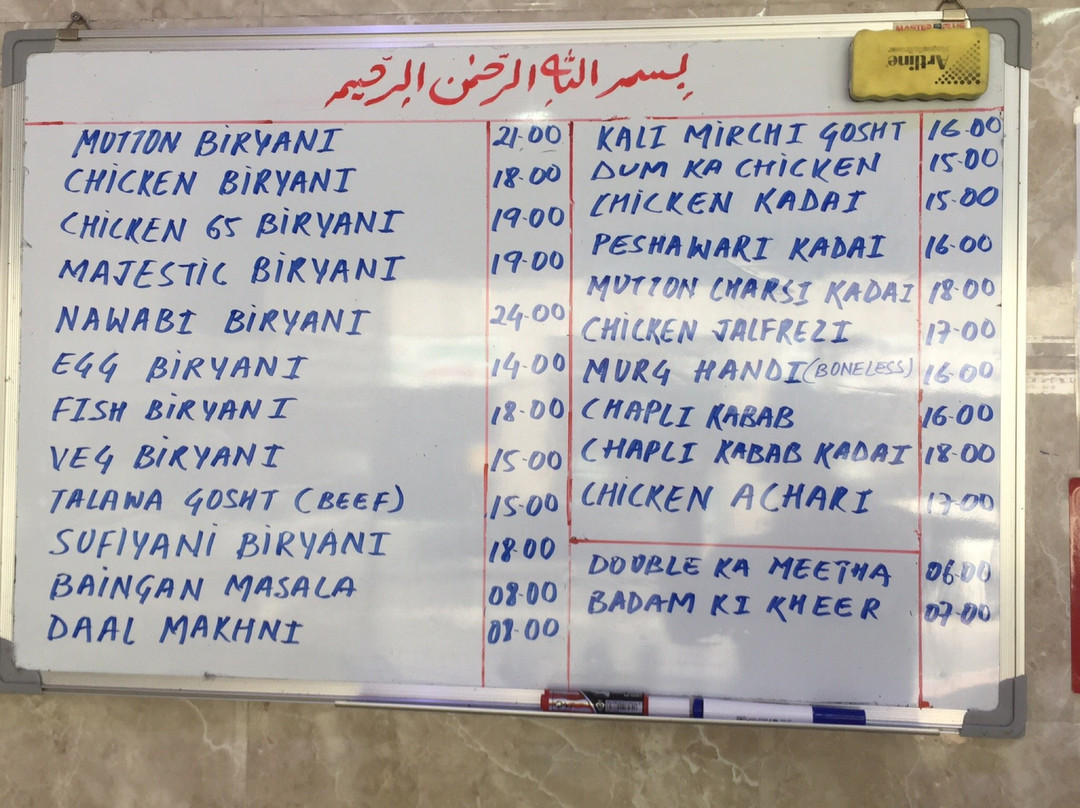 بسم الله الرحمن الرحيم
Artline
MUTTON BIRYANI 21.00
CHICKEN BIRYANI 18.00
CHICKEN 65 BIRYANI 19.00
MAJESTIC BIRYANI 19.00
NAWABI BIRYANI 24.00
EGG BIRYANI 14.00
FISH BIRYANI 18.00
VEG BIRYANI 15.00
TALAWA GOSHT (BEEF) 15.00
SUFIYANI BIRYANI 18.00
BAINGAN MASALA 08.00
DAAL MAKHNI 08.00
KALI MIRCHI GOSHT 16.00
DUM KA CHICKEN 15.00
CHICKEN KADAI 15.00
PESHAWARI KADAI 16.00
MUTTON CHARSI KADAI 18.00
CHICKEN JALFREZI 17.00
MURG HANDI (BONELESS) 16.00
CHAPLI KABAB 16.00
CHAPLI KABAB KADAI 18.00
CHICKEN ACHARI 17.00
DOUBLE KA MEETHA 06.00
BADAM KI KHEER 07.00